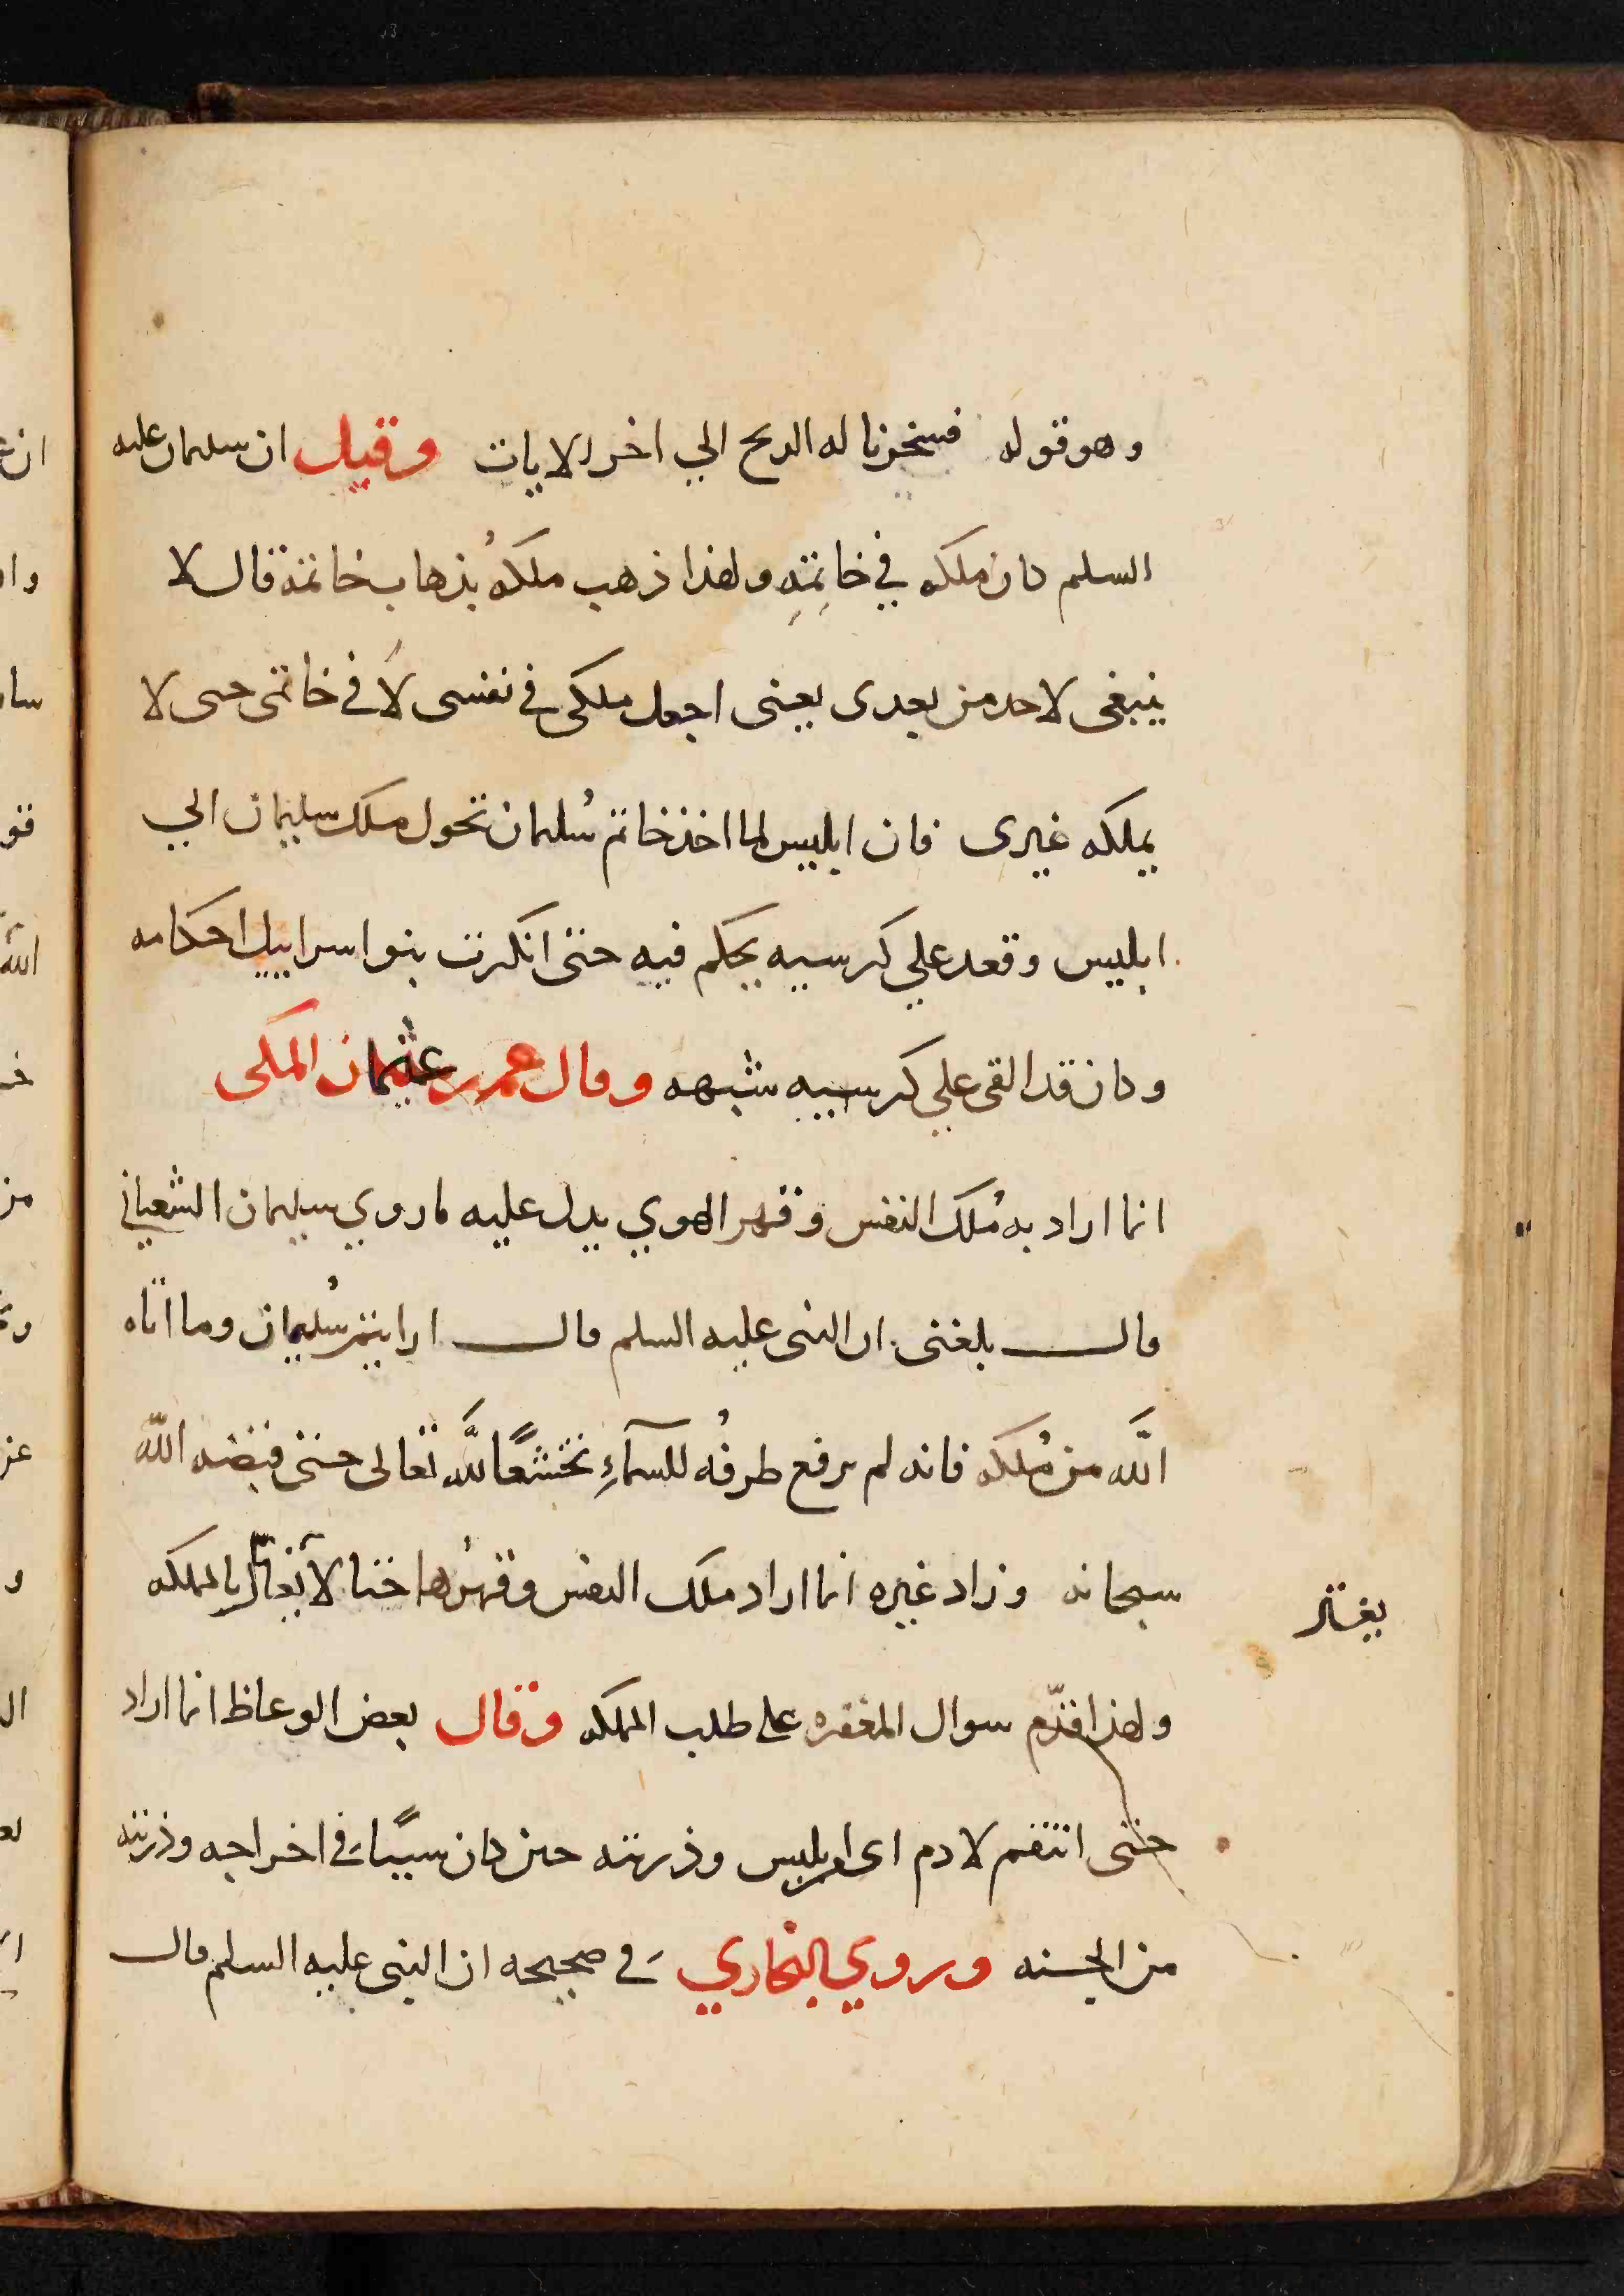 وهو قوله فسخرنا له الريح الي اخر الايات وقيل ان سليمان عليه
السلم كان ملكه في خاتِمِهِ ولهذا ذهب ملكهُ بذهاب خاتمه قال لا
ينبغى لاحد من بعدى يعنى اجعل ملكى في نفسى لا في خاتمى حتى لا
يملكه غيرى فان ابليس لما اخذ خاتم سُليمان تحول ملك سليمان الي
ابليس وقعد علي كرسيه يحكم فيه حتى انكرت بنوا اسراييل احكامه
وكان قد القى علي كرسيه شبهه وقال عمرو بن عثمان المكى
انما اراد به مُلك النفس وقهر الهوي يدل عليه ماروي سليمان الشعباني
قال بلغنى ان النبى عليه السلم قال ارايتم سُليمان وما اتاه
اللَّه من مُلكه فانه لم يرفع طرفُه للسمآءِ تخشعًا للَّه تعالى حتى قبضه اللّه
سبحانه وزاد غيره انما اراد ملك النفس وقهرُها حتى لا بالمملكه
يغتر
ولهذا قدّم سوال المغفره على طلب المملكه وقال بعض الوعاظ انما اراد
حتى انتقم لادم اى من ابليس وذريته حين كان سببًا في اخراجه وذريته
من الجنه وروي البخاري في صحيحه ان النبى عليه السلم قال